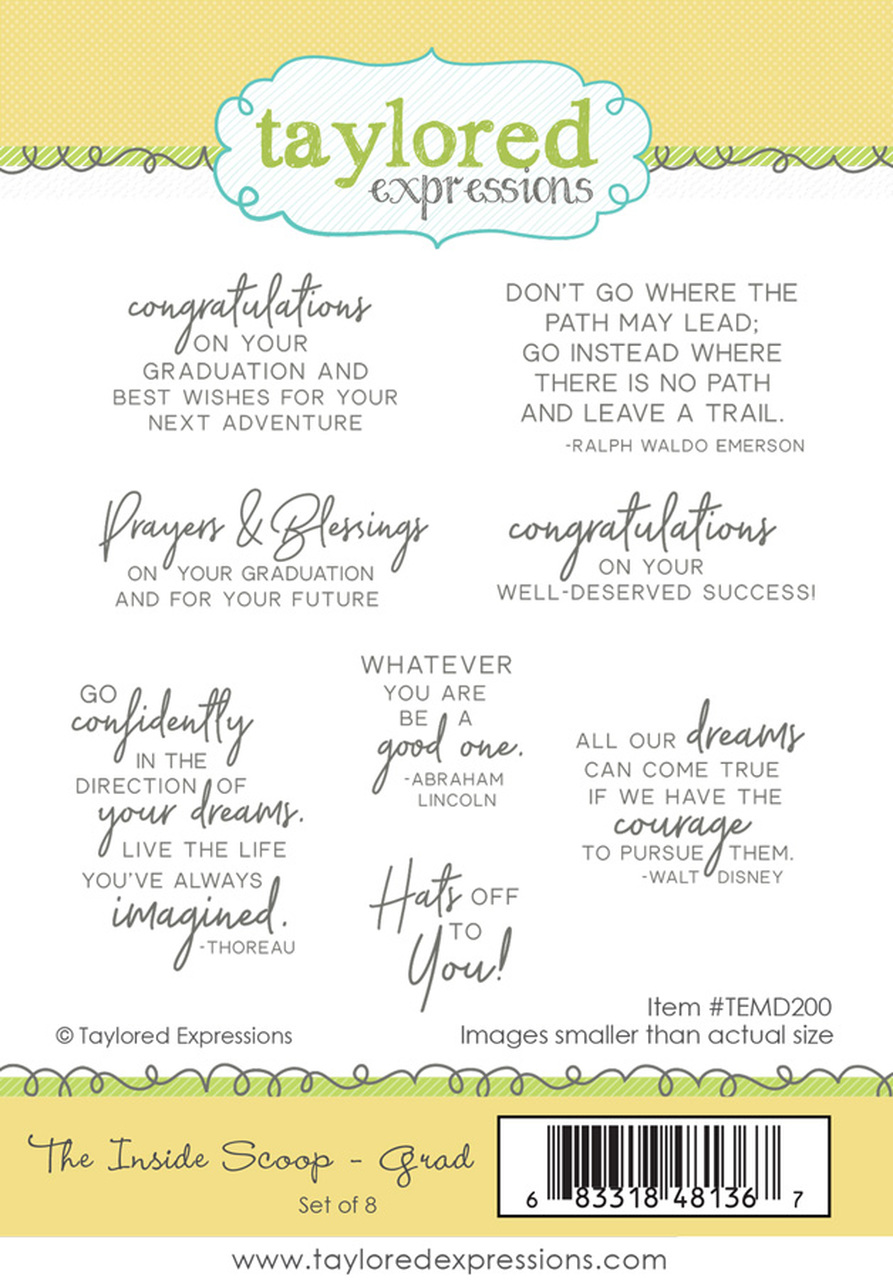 taylored
expressions
congratulations
ON YOUR
GRADUATION AND
BEST WISHES FOR YOUR
NEXT ADVENTURE
DON'T GO WHERE THE
PATH MAY LEAD;
GO INSTEAD WHERE
THERE IS NO PATH
AND LEAVE A TRAIL.
-RALPH WALDO EMERSON
Prayers & Blessings
ON YOUR GRADUATION
AND FOR YOUR FUTURE
congratulations
ON YOUR
WELL-DESERVED SUCCESS!
GO
confidently
IN THE
DIRECTION OF
your dreams.
LIVE THE LIFE
YOU'VE ALWAYS
imagined.
-THOREAU
WHATEVER
YOU ARE
BE A
good one.
-ABRAHAM
LINCOLN
ALL OUR dreams
CAN COME TRUE
IF WE HAVE THE
courage
TO PURSUE THEM.
-WALT DISNEY
Hats OFF
TO
You!
Item #TEMD200
© Taylored Expressions
Images smaller than actual size
The Inside Scoop - Grad
Set of 8
6 83318 48136 7
www.tayloredexpressions.com